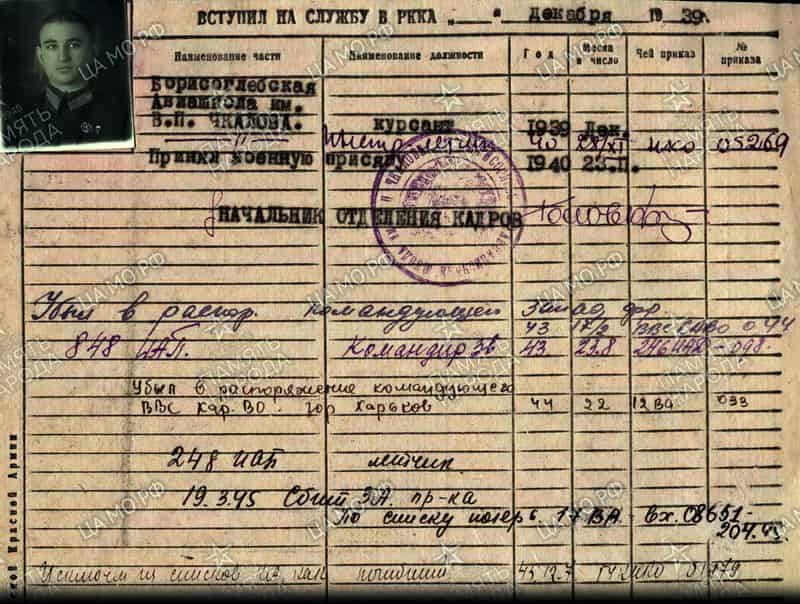 ВСТУПИЛ НА СЛУЖБУ В РККА „ “ декабря 1939г.
Наименование части Наименование должности Год Месяц и число Чей приказ № приказа
Борисоглебская
Авиашкола им.
В.П. ЧКАЛОВА. курсант 1939 Дек.
—„— 40 XI НКО 05269
Принял военную присягу 1940 23.П.
НАЧАЛЬНИК ОТДЕЛЕНИЯ КАДРОВ
Убыл в распор. командующего Запад. фр.
43 17/2 ВВС 094
848 ИАП. Командир зв 43 23.8 246ИАД 098.
Убыл в распоряжение командующего
ВВС Хар. ВО. гор Харьков 44 22 12 ВА 033
248 ИАП летчик
19.3.45 Сбит ЗА. пр-ка
По списку потерь 17 ВА вх. 08651-
204.45.
Исключен из списков как погибший 45 12.7 ГУК НКО 01979
ской Красной Армии
ЦАМО.РФ
ПАМЯТЬ НАРОДА